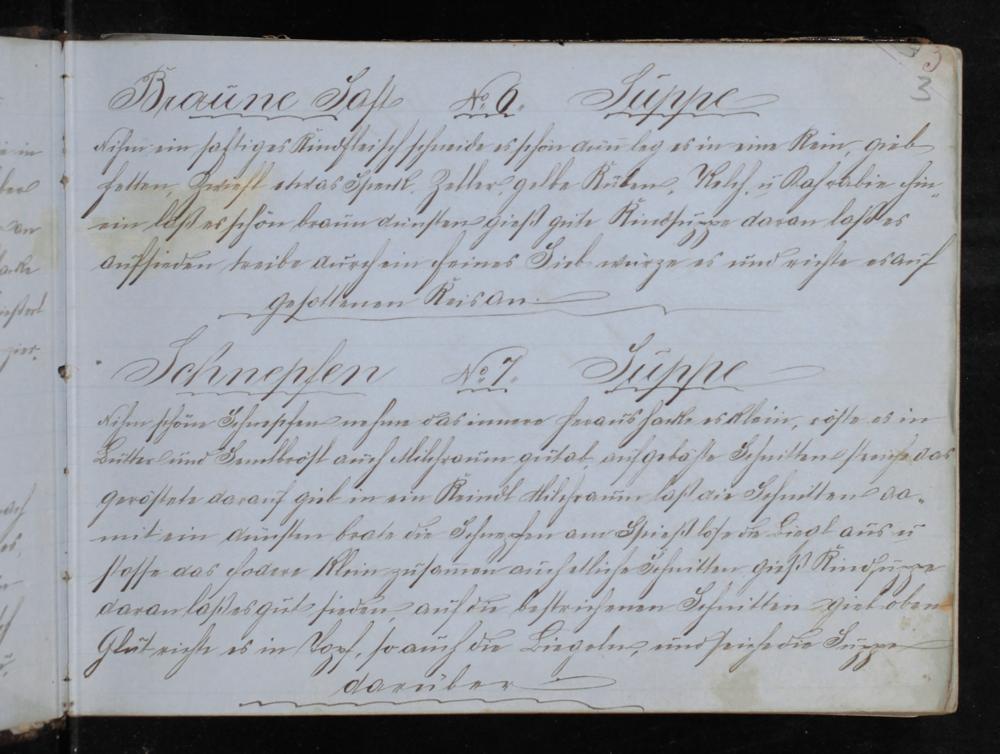 3
3
Braune Saft No. 6. Suppe
Nihm ein saftiges Rindfleisch schneide es schön auf leg es in eine Rein, gieb
fetten, Zwiefl etwas Speck, Zeller, gelbe Rüben, Kelch, u Kahrabie hin-
ein laß es schön braun dünsten gieß gute Rindsuppe daran laß es
aufsieden treibe durch ein feines Sieb würze es und richte es auf
gesottenen Reis an.
Schnepfen No. 7. Suppe
Nihm schöne Schnepfen nehme das innere heraus hacke es klein, röste es in
Butter und Semlbrösl auch Milchraum gut ab, auf gebähte Schnitten streiche das
geröstete darauf gieb in ein Reindl Milchraum laß die Schnitten da-
mit ein dünsten brate die Schnepfen am Spieß löse die Biegl aus u
stosse das andere klein zusamen auch etliche Schnitten gieß Rindsuppe
daran laß es gut sieden, auf die bestrichenen Schnitten gieb oben
Glut richte es in Topf, so auch die Biegeln, und seiche die Suppe
darüber